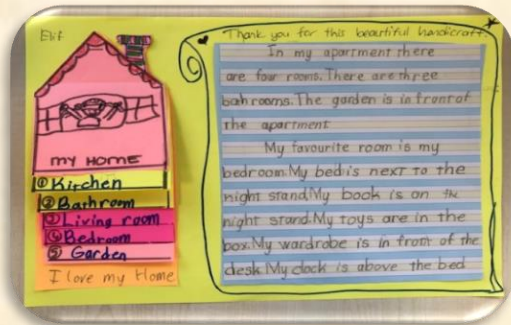 Elif
MY HOME
① Kitchen
② Bathroom
③ Living room
④ Bedroom
⑤ Garden
I love my Home
Thank you for this beautiful handicraft.
In my apartment there
are four rooms. There are three
bathrooms. The garden is in front of
the apartment
My favourite room is my
bedroom. My bed is next to the
night stand. My book is on the
night stand. My toys are in the
box. My wardrobe is in front of the
desk. My clock is above the bed